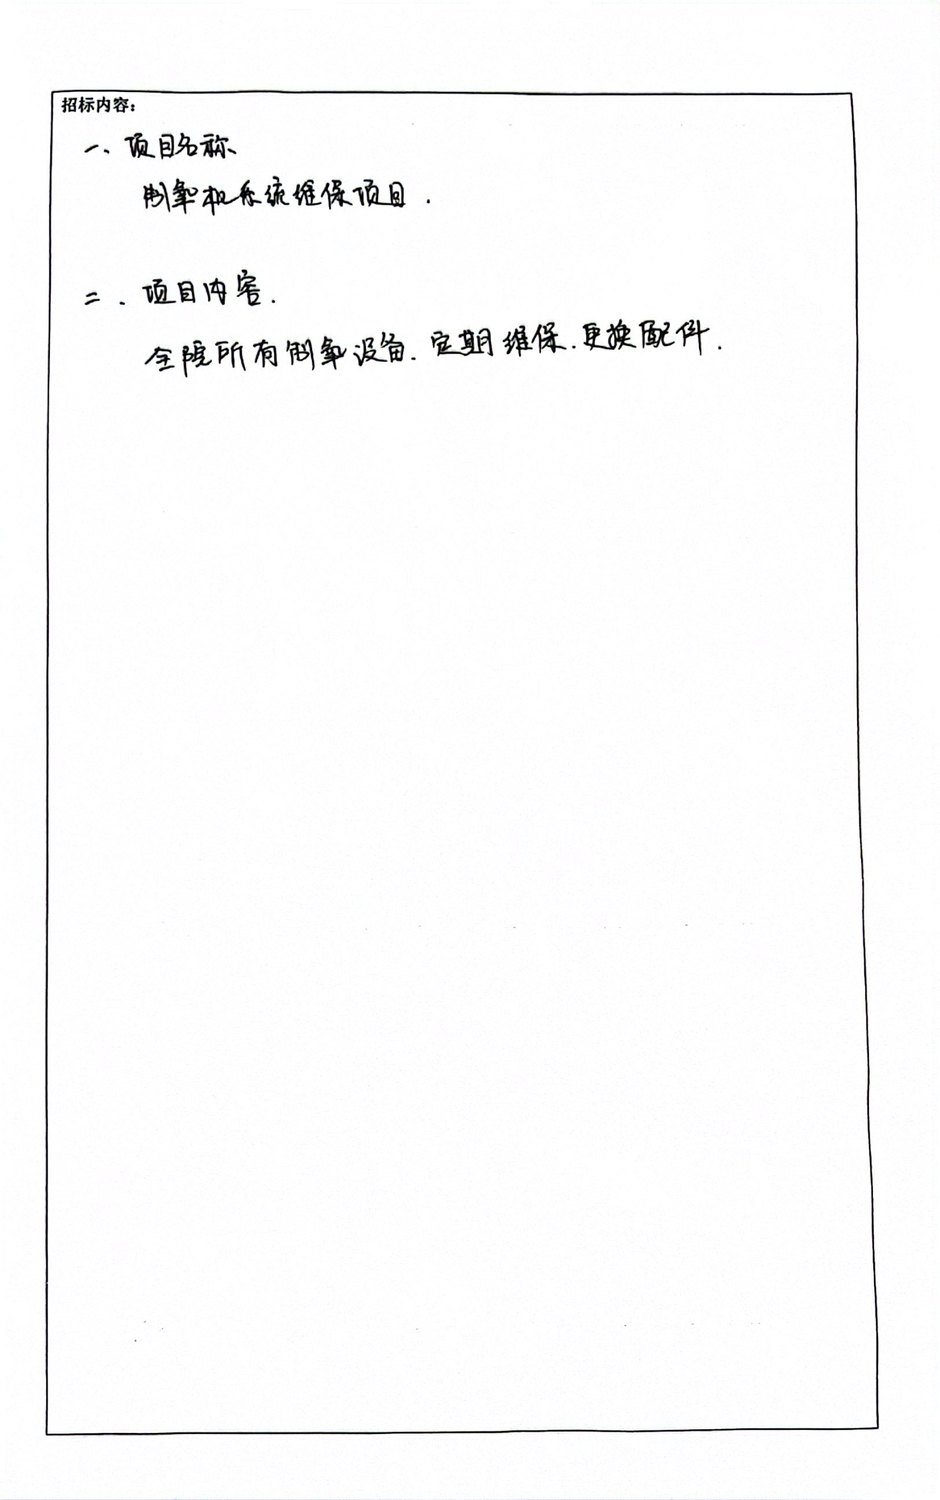 招标内容：
一、项目名称
制氧机系统维保项目.
二.项目内容.
全院所有制氧设备.定期维保.更换配件.